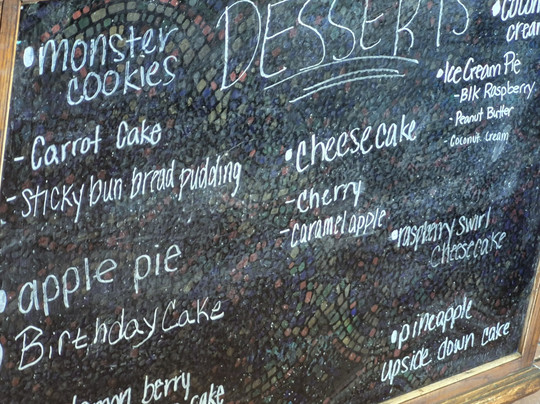 DESSERTS
•monster
cookies
-Carrot Cake
-sticky bun bread pudding
•apple pie
Birthday Cake
berry
cake
•cheesecake
-cherry
-caramel apple
cream
•Ice Cream Pie
-Blk Raspberry
-Peanut Butter
-Coconut Cream
•raspberry swirl
cheesecake
•pineapple
upside down cake